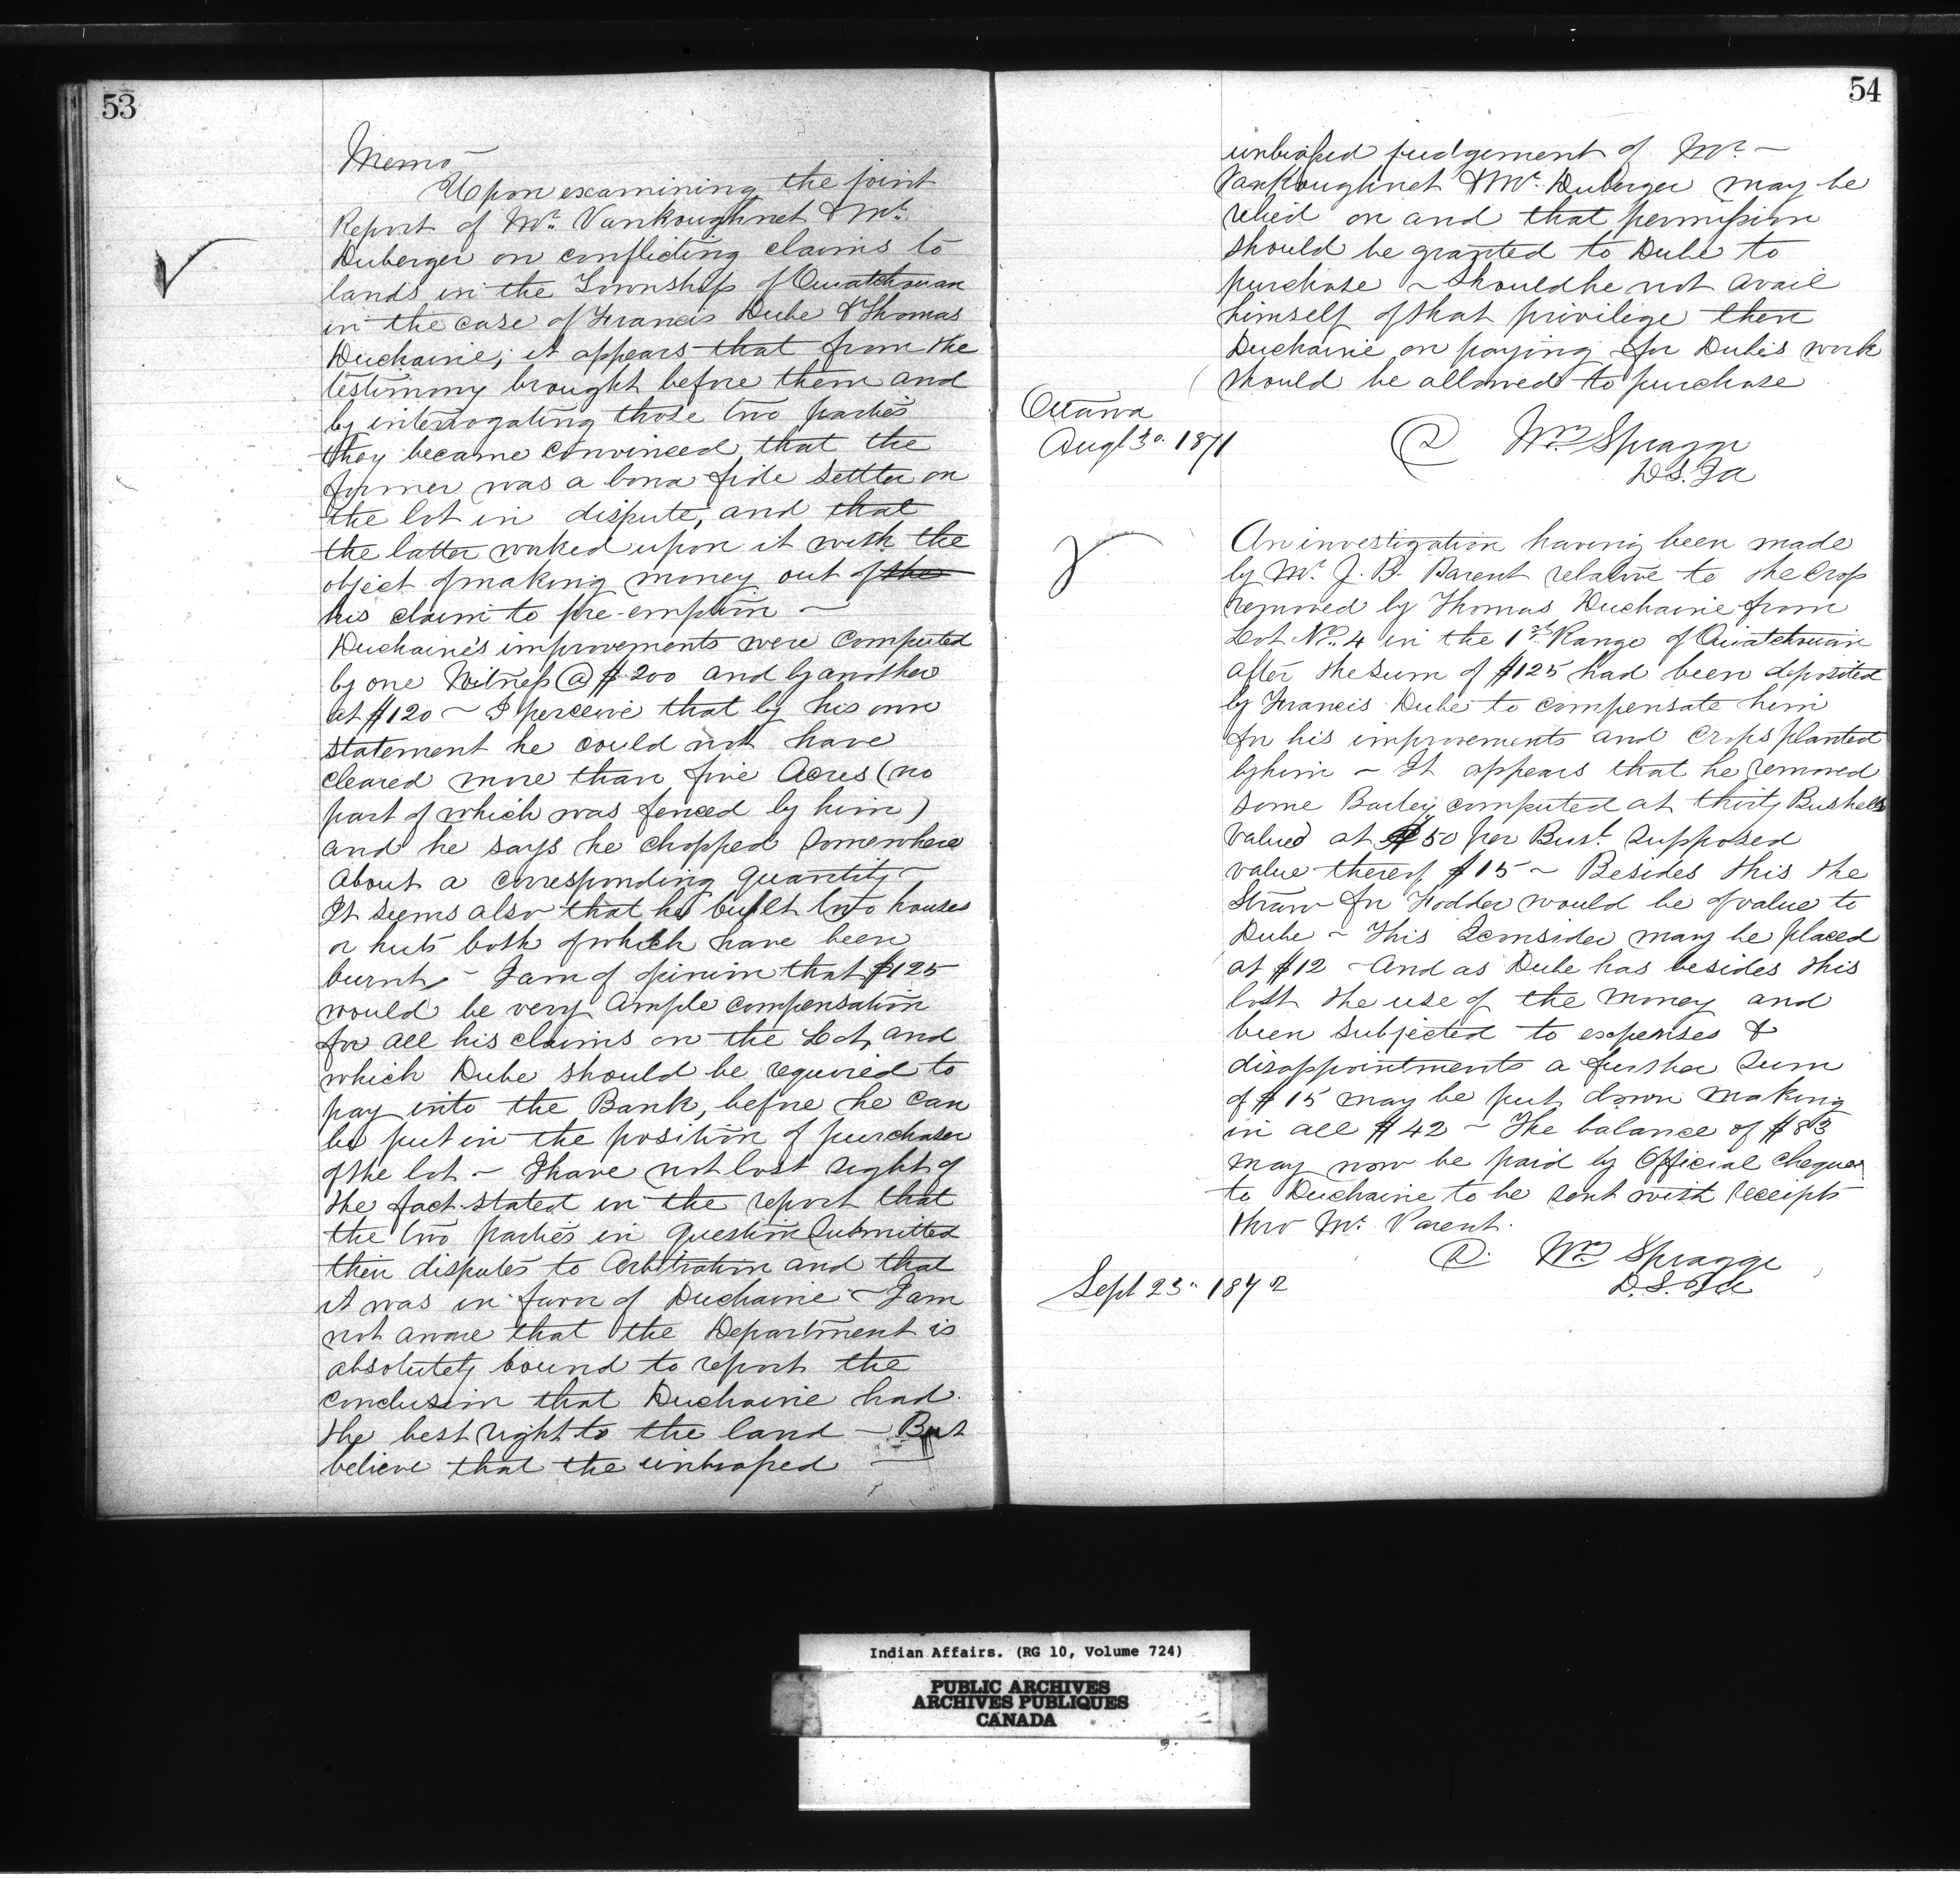 53
Memo
Upon examining the joint
Report of Mr. Vankoughnet & Mr.
Duberger on conflicting claims to
lands in the Township of Ouiatchouan
in the case of Francis Dube & Thomas
Duchaine; it appears that from the
testimony brought before them and
by interrogating those two parties
they became convinced that the
former was a bona fide settler on
the lot in dispute, and that
the latter worked upon it with the
object of making money out of the
his claim to pre-emption —
Duchaine's improvements were computed
by one Witness @ $200 and by another
at $120 ~ I perceive that by his own
statement he could not have
cleared more than five Acres (no
part of which was fenced by him)
and he says he chopped somewhere
about a corresponding quantity ~
It seems also that he built two houses
or huts both of which have been
burnt ~ I am of opinion that $125
would be very ample compensation
for all his claims on the Lot, and
which Dube should be required to
pay into the Bank, before he can
be put in the position of purchaser
of the lot ~ I have not lost sight of
the fact stated in the report that
the two parties in question submitted
their disputes to Arbitration and that
it was in favor of Duchaine ~ I am
not aware that the Department is
absolutely bound to report the
conclusion that Duchaine had
the best right to the land — But
believe that the unbiassed —
54
unbiassed judgement of Mr. ~
Vankoughnet & Mr. Duberger may be
relied on and that permission
should be granted to Dube to
purchase ~ Should he not avail
himself of that privilege then
Duchaine on paying for Dube's work
should be allowed to purchase
Ottawa
Augt 30. 1871
Wm Spragge
D.S. I a
An investigation having been made
by Mr. J. B. Parent relative to the Crop
removed by Thomas Duchaine from
Lot No. 4 in the 1st Range of Ouiatchouan
after the sum of $125 had been deposited
by Francis Dube to compensate him
for his improvements and crops planted
by him ~ It appears that he removed
some Barley computed at thirty Bushells
valued at 50 per Bust. supposed
value thereof $15 ~ Besides this the
Straw for Fodder would be of value to
Dube ~ This I consider may be placed
at $12 ~ And as Dube has besides this
lost the use of the money and
been subjected to expenses &
disappointments a further sum
of $15 may be put down making
in all $42 ~ The balance of $83
may now be paid by Official cheque
to Duchaine to be sent with receipts
thro Mr. Parent.
Wm Spragge
D.S. I a
Sept 23. 1872
Indian Affairs. (RG 10, Volume 724)
PUBLIC ARCHIVES
ARCHIVES PUBLIQUES
CANADA